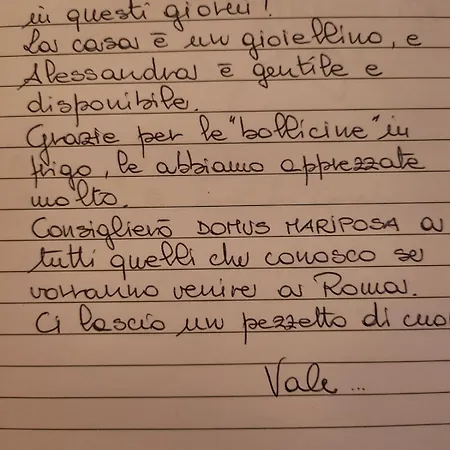 in questi giorni!
La casa è un gioiellino, e
Alessandra è gentile e
disponibile.
Grazie per le "bollicine" in
frigo, le abbiamo apprezzate
molto.
Consiglierò DOMUS MARIPOSA a
tutti quelli che conosco se
vorranno venire a Roma.
Ci lascio un pezzetto di cuo
Vale...